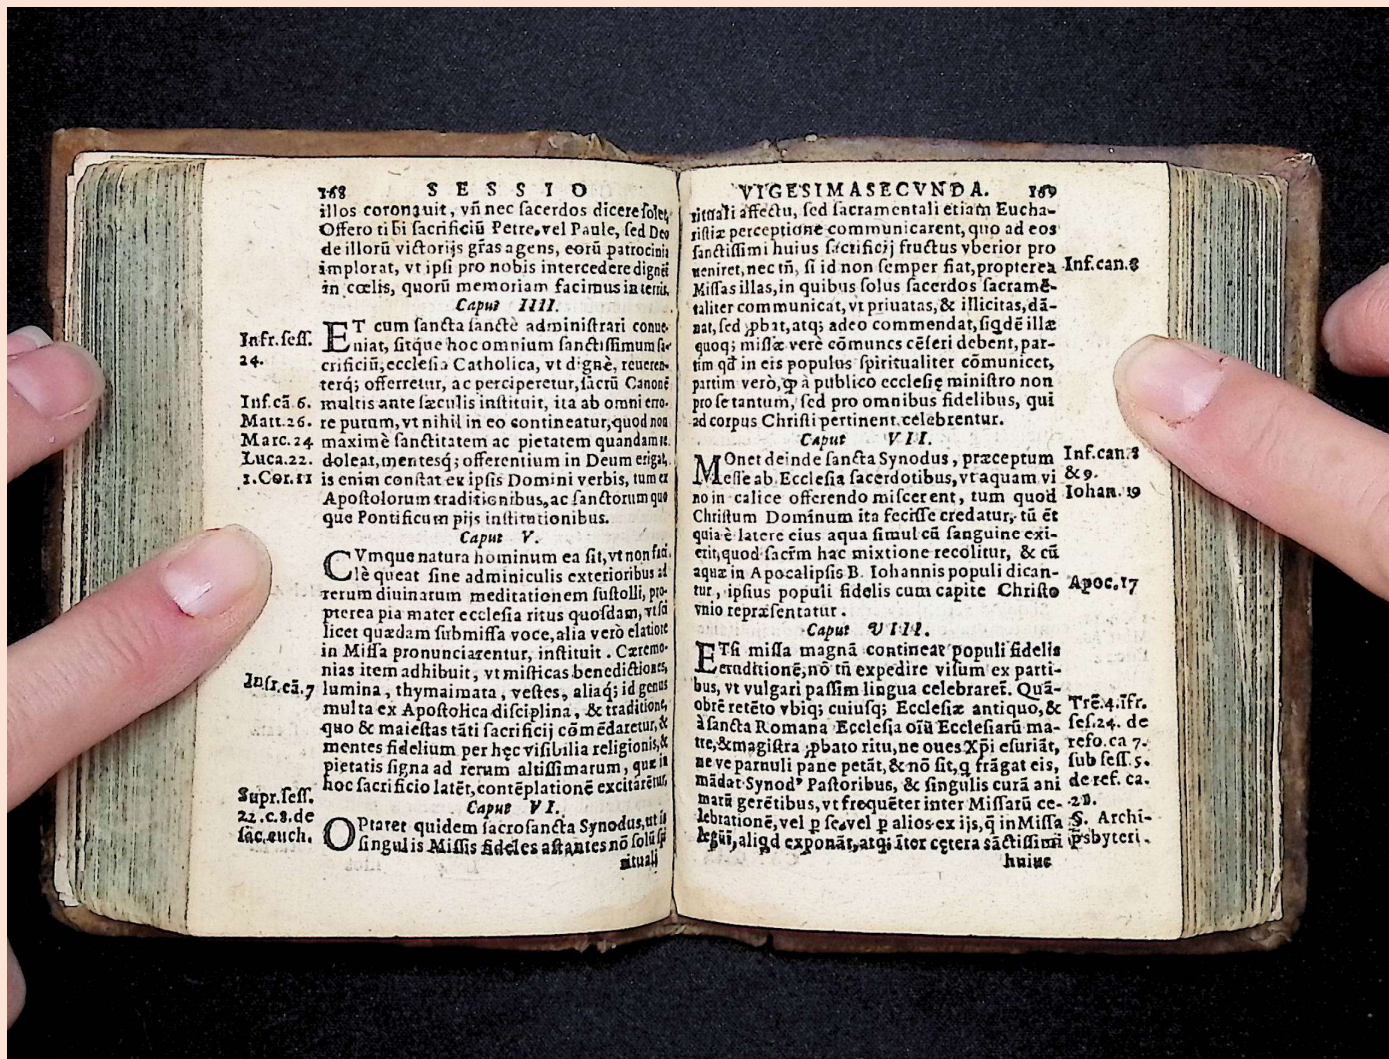 168 SESSIO
illos coronauit, vñ nec ſacerdos dicere ſolet,
Offero tibi ſacrificiũ Petre, vel Paule, ſed Deo
de illorũ victorijs gr̃as agens, eorũ patrocinia
implorat, vt ipſi pro nobis intercedere dignẽt
in cœlis, quorũ memoriam facimus in terris.
Caput IIII.
ET cum ſancta ſanctè adminiſtrari conue-
niat, ſitque hoc omnium ſanctiſſimum ſa-
crificiũ, eccleſia Catholica, vt dignè, reueren-
terq; offerretur, ac perciperetur, ſacrũ Canonẽ
multis ante ſæculis inſtituit, ita ab omni erro-
re purum, vt nihil in eo contineatur, quod non
maximè ſanctitatem ac pietatem quandam re-
doleat, menteſq; offerentium in Deum erigat.
is enim conſtat ex ipſis Domini verbis, tum ex
Apoſtolorum traditionibus, ac ſanctorum quo
que Pontificum pijs inſtitutionibus.
Caput V.
CVmque natura hominum ea ſit, vt non faci
lè queat ſine adminiculis exterioribus ad
rerum diuinarum meditationem ſuſtolli, pro-
pterea pia mater eccleſia ritus quoſdam, vt ſci
licet quædam ſubmiſſa voce, alia verò elatiore
in Miſſa pronunciarentur, inſtituit. Cæremo-
nias item adhibuit, vt miſticas benedictiones,
lumina, thymaimata, veſtes, aliaq; id genus
multa ex Apoſtolica diſciplina, & traditione,
quo & maieſtas tãti ſacrificij cõmẽdaretur, &
mentes fidelium per hęc viſibilia religionis, &
pietatis ſigna ad rerum altiſſimarum, quæ in
hoc ſacrificio latẽt, contẽplationẽ excitarẽtur.
Caput VI.
OPtaret quidem ſacroſancta Synodus, ut in
ſingulis Miſſis fideles aſtantes nõ ſolũ ſpi
rituali
Infr. ſeſſ.
24.
Inf. cã. 6.
Matt. 26.
Marc. 24
Luca. 22.
1. Cor. 11
Infr. cã. 7
Supr. ſeſſ.
22. c. 8. de
ſac. euch.
VIGESIMASECVNDA. 169
rituali affectu, ſed ſacramentali etiam Eucha-
riſtiæ perceptione communicarent, quo ad eos
ſanctiſſimi huius ſacrificij fructus vberior pro
ueniret, nec tñ, ſi id non ſemper fiat, propterea
Miſſas illas, in quibus ſolus ſacerdos ſacramẽ-
taliter communicat, vt priuatas, & illicitas, dã-
nat, ſed ꝓbat, atq; adeo commendat, ſiqdẽ illæ
quoq; miſſæ verè cõmunes cẽſeri debent, par-
tim qđ in eis populus ſpiritualiter cõmunicet,
partim verò, ꝙ à publico eccleſię miniſtro non
pro ſe tantum, ſed pro omnibus fidelibus, qui
ad corpus Chriſti pertinent celebrentur.
Caput VII.
MOnet deinde ſancta Synodus, præceptum
eſſe ab Eccleſia ſacerdotibus, vt aquam vi
no in calice offerendo miſcerent, tum quod
Chriſtum Dominum ita feciſſe credatur, tũ ẽt
quia è latere eius aqua ſimul cũ ſanguine exi-
erit, quod ſacr̃m hac mixtione recolitur, & cũ
aquæ in Apocalipſis B. Iohannis populi dican-
tur, ipſius populi fidelis cum capite Chriſto
vnio repræſentatur.
Caput VIII.
ETſi miſſa magnã contineat populi fidelis
eruditionẽ, nõ tñ expedire viſum ex parti-
bus, vt vulgari paſſim lingua celebraret̃. Quã-
obrẽ retẽto vbiq; cuiuſq; Eccleſiæ antiquo, &
à ſancta Romana Eccleſia oĩũ Eccleſiarũ ma-
tre, & magiſtra ꝓbato ritu, ne oues Xp̃i eſuriãt,
ne ve paruuli pane petãt, & nõ ſit, q frãgat eis,
mãdat Synodꝰ Paſtoribus, & ſingulis curã ani
marũ gerẽtibus, vt frequẽter inter Miſſarũ ce-
lebrationẽ, vel p̱ ſe, vel p̱ alios ex ijs, q̃ in Miſſa
legũt, aliqd exponãt, atq; ĩter cętera sãctiſſimi
huius
Inf. can. 8
Inf. can. 8
& 9.
Iohan. 19
Apoc. 17
Trẽ. 4. ĩfr.
ſeſ. 24. de
refo. ca 7.
ſub ſeſſ. 5.
de ref. ca.
21.
§. Archi-
p̃sbyteri.